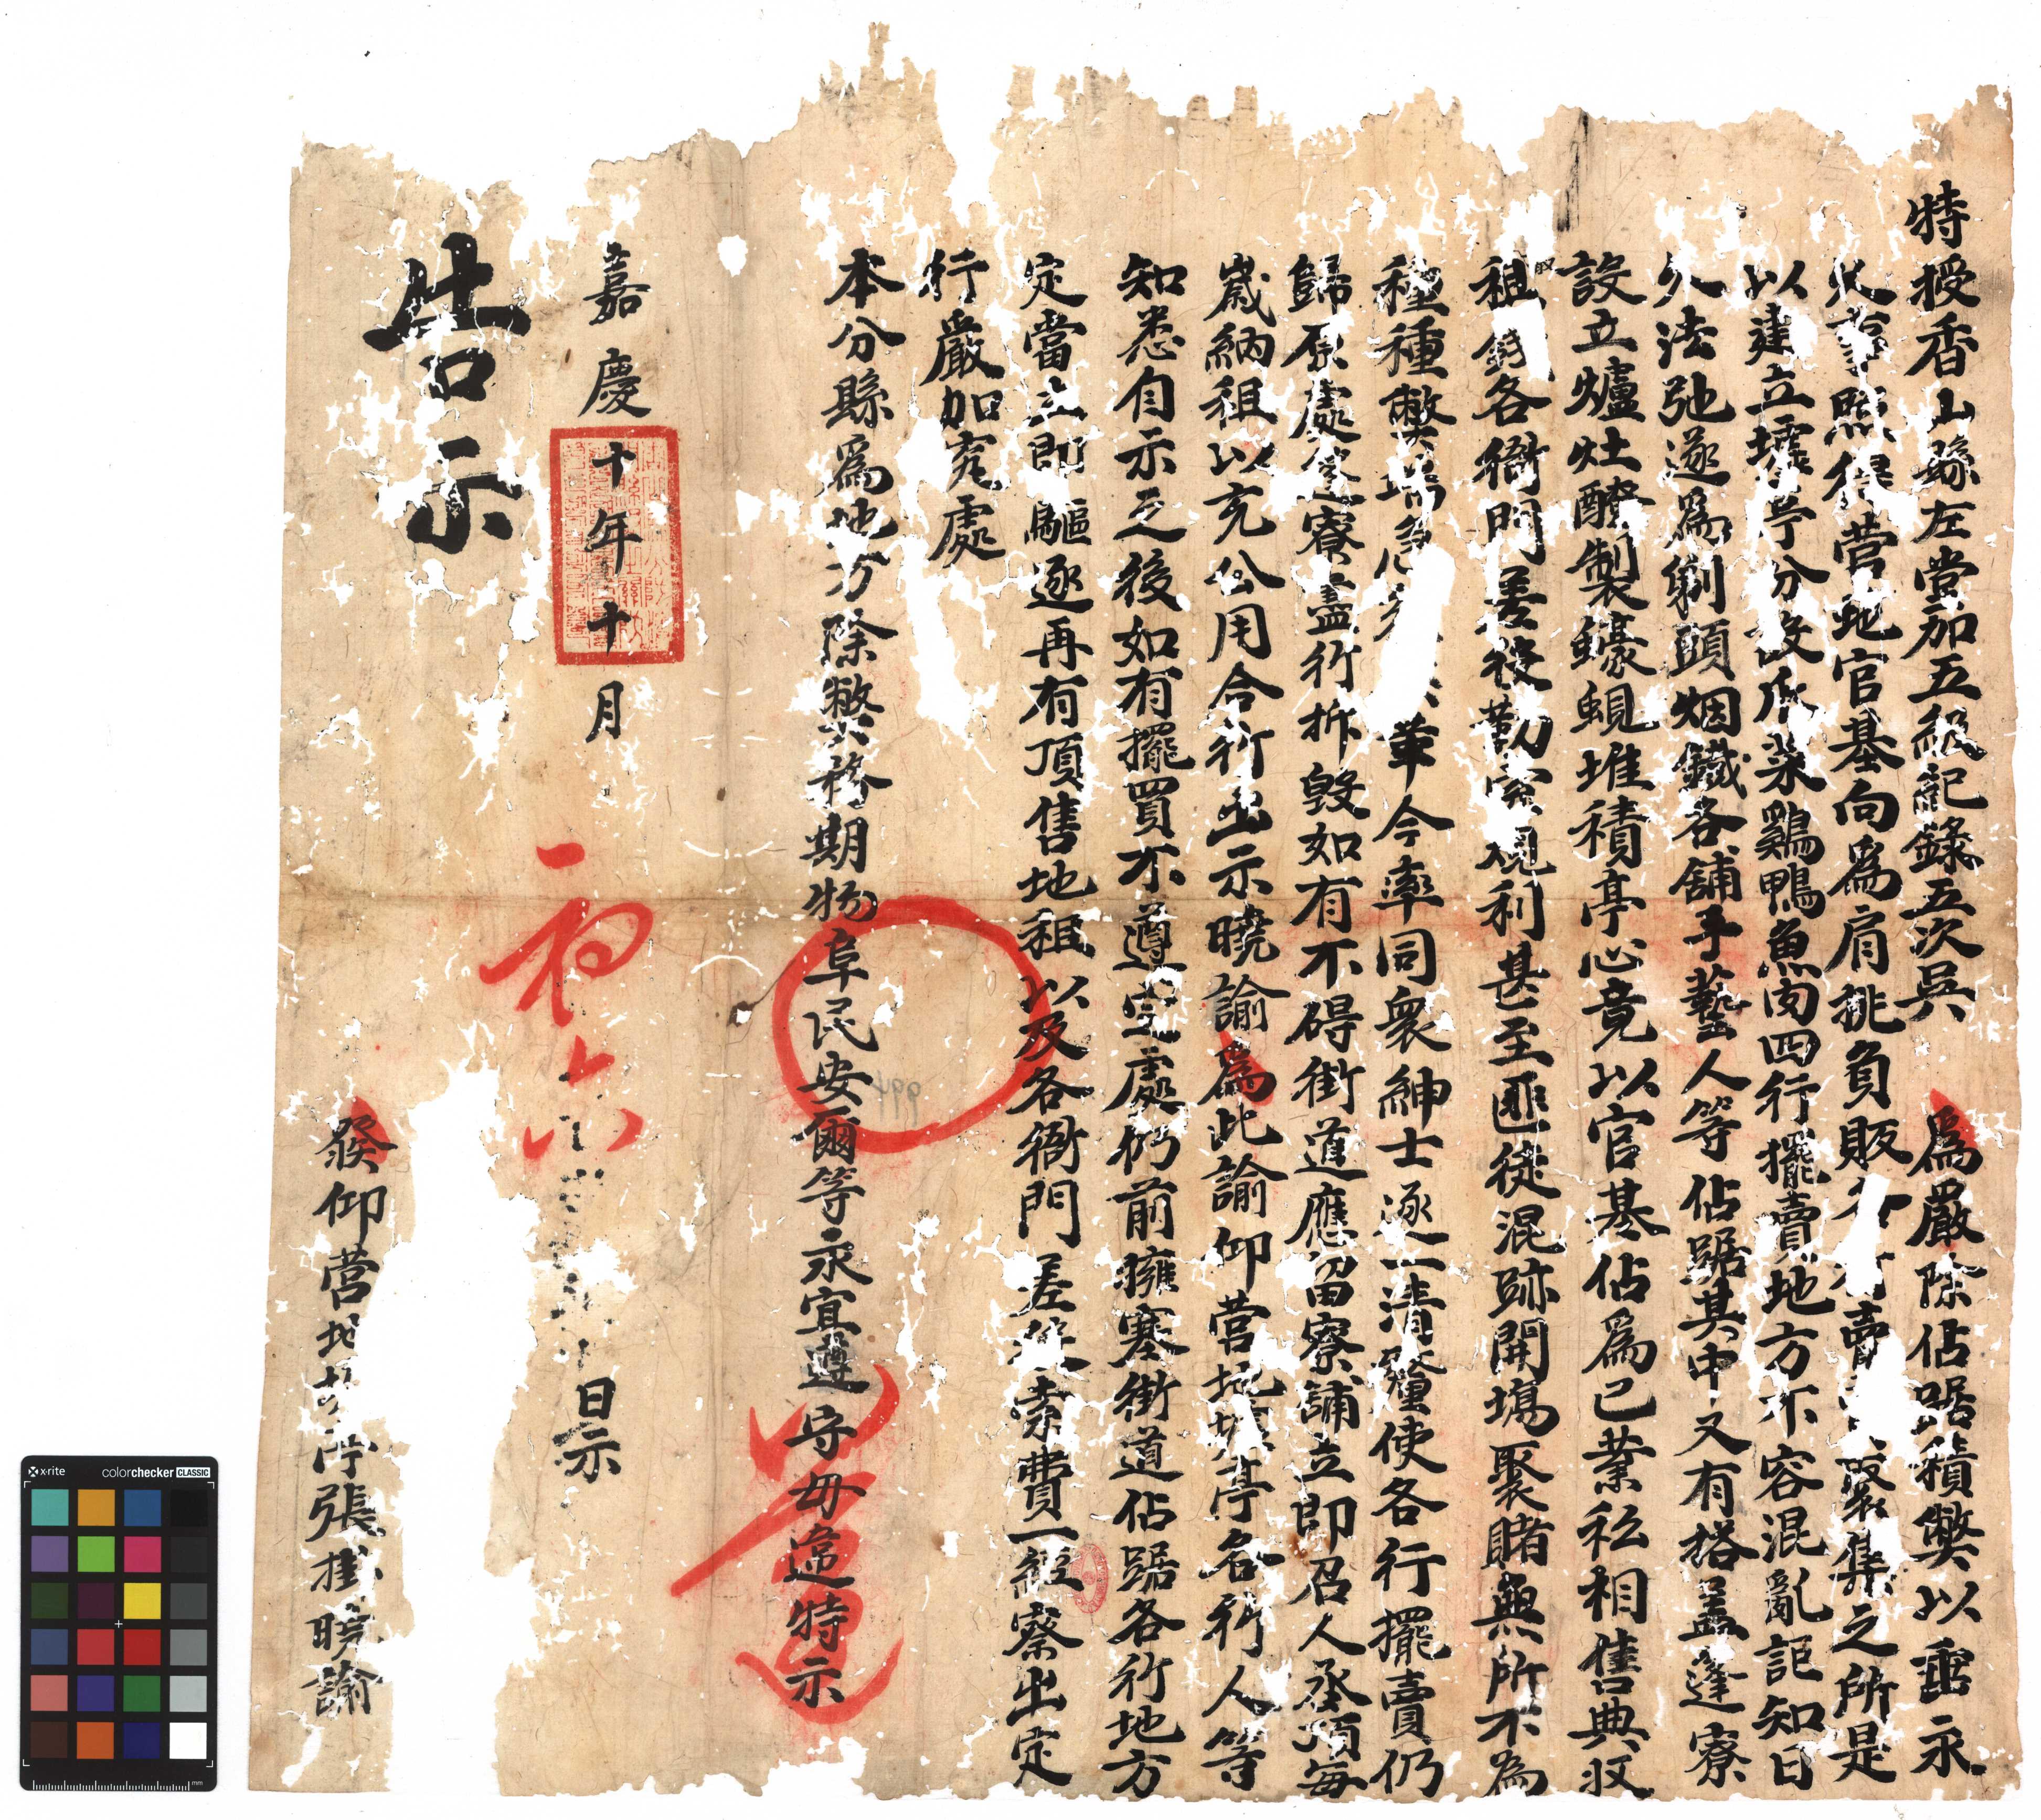 特授香山縣左堂加五級紀錄五次吳 為嚴除佔踞積弊以垂永
久事照得營地官基向為肩挑負販各賣聚集之所是
以建立墟亭分設瓜菜鷄鴨魚肉四行擺賣地方不容混亂詎知日
久法弛遂為剃頭烟鐵各舖手藝人等佔踞其中又有搭蓋蓬寮
設立爐灶醃製蠔蜆堆積亭心竟以官基佔為己業私相售典收
租錢各衙門差役勒索規利甚至匪徒混跡開塲聚賭無所不為
種種弊端急革今率同衆紳士逐一清釐使各行擺賣仍
歸原處蓬寮盡行拆毀如有不碍街道應留寮舖立即召人承頂每
歲納租以充公用合行出示曉諭為此諭仰營地墟亭各行人等
知悉自示之後如有擺買不遵定處仍前擁塞街道佔踞各行地方
定當立即驅逐再有頂售地租以及各衙門差役索費一經察出定
行嚴加究處
本分縣為地方除弊務期物阜民安爾等永宜遵守毋違特示
遵
嘉慶十年十月初六日示
告示
發仰營地張掛曉諭